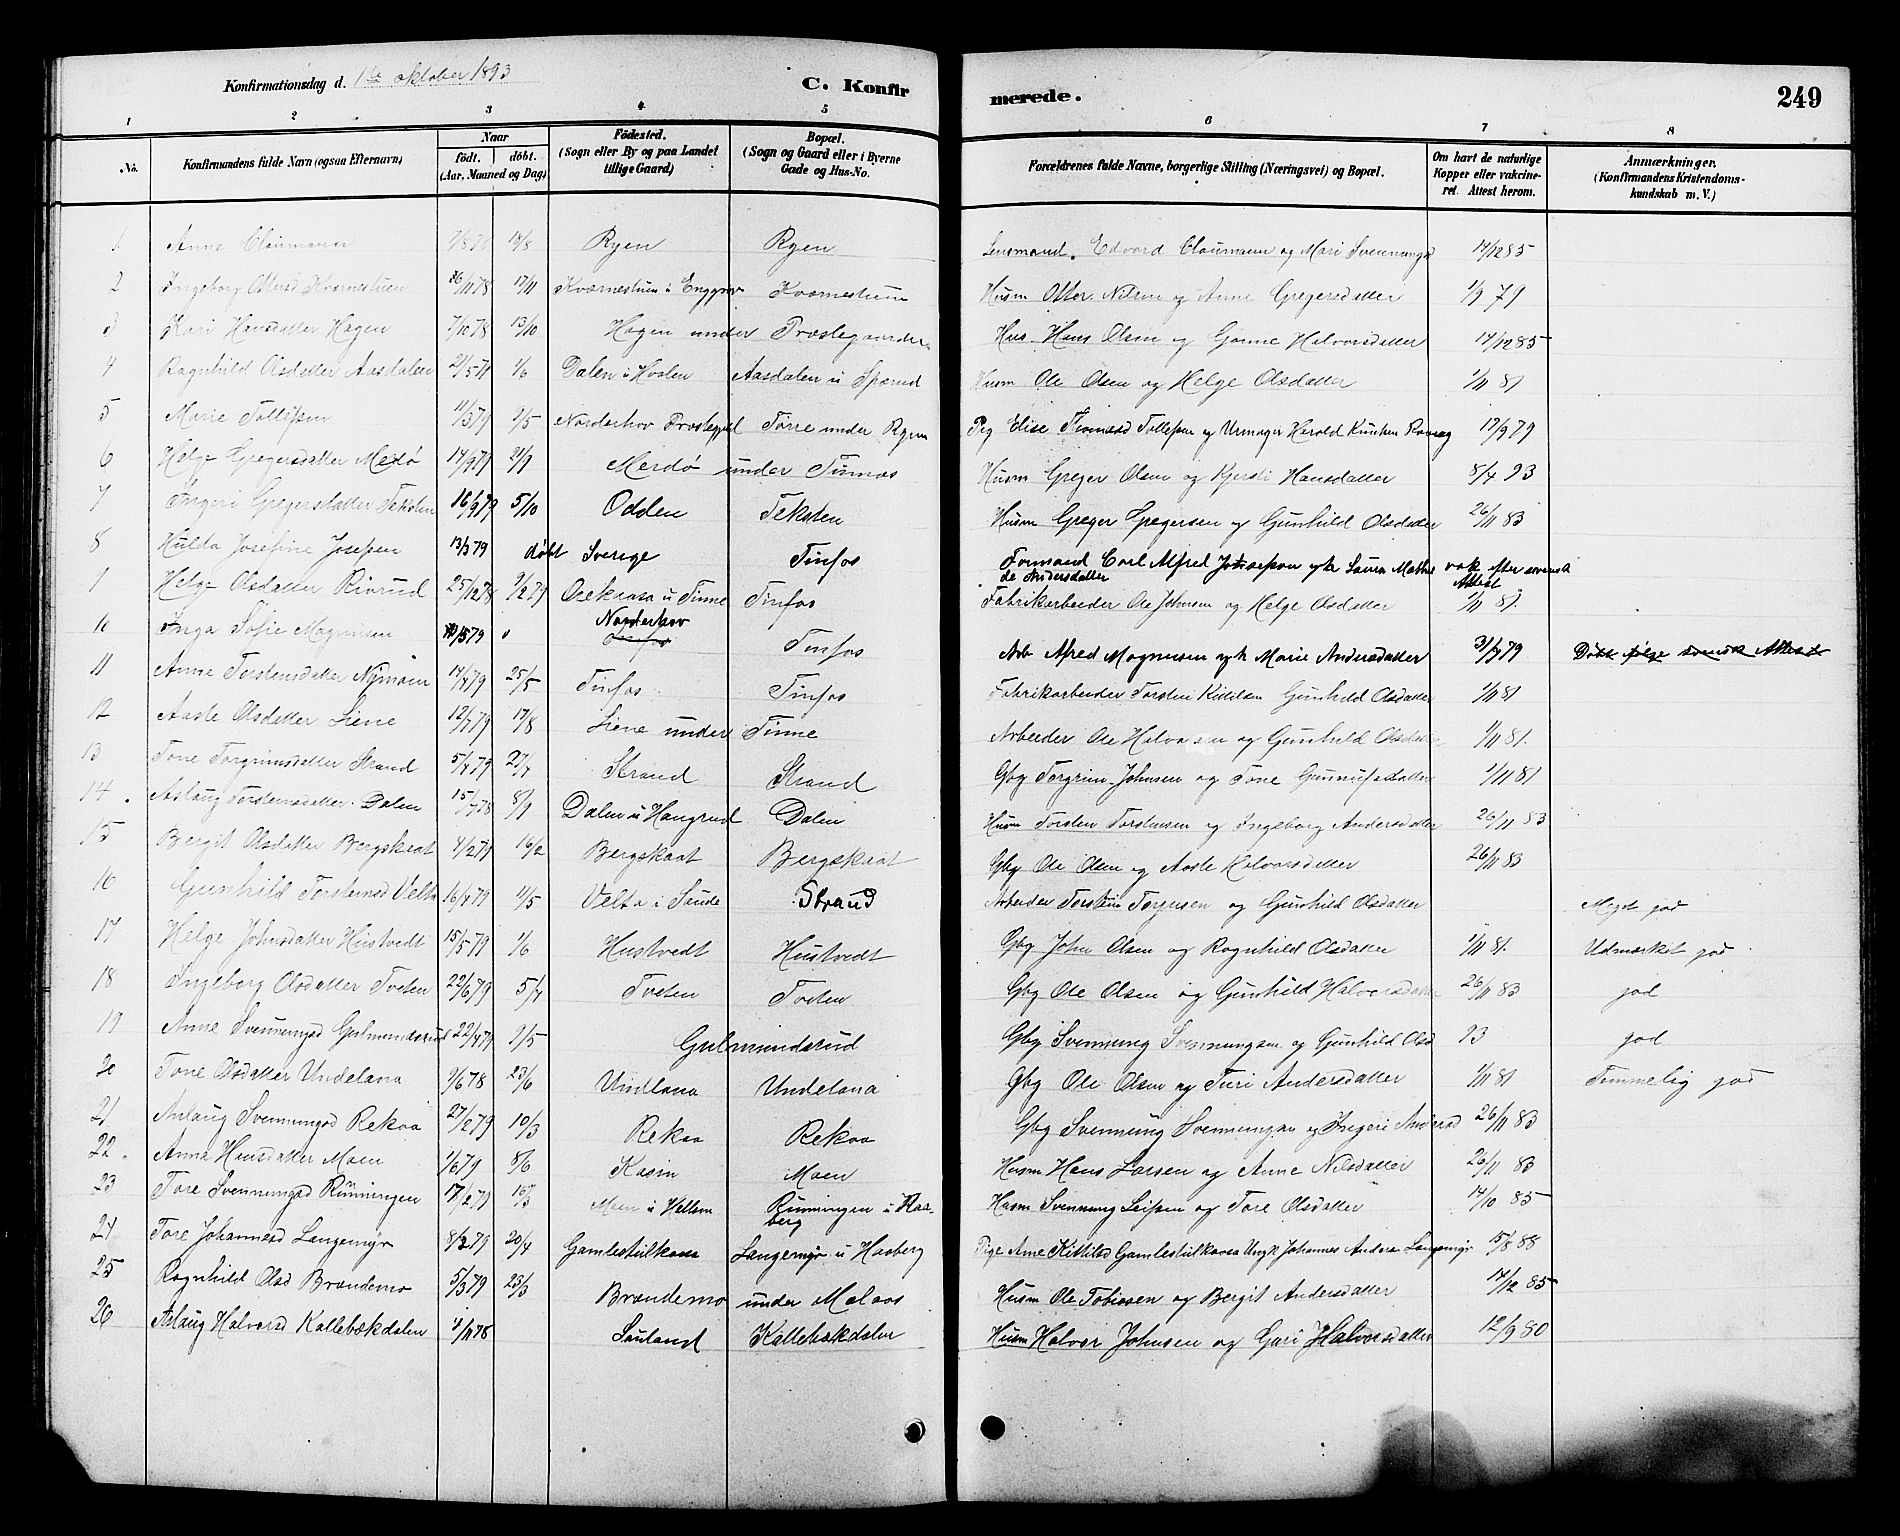 Konfirmationsdag d. 1ste oktober 1893
C. Konfirmerede. 249
1 2 3 4 5 6 7 8
No. Konfirmandens fulde Navn (ogsaa Efternavn) Naar födt. döbt. (Aar, Maaned og Dag) Födested. (Sogn eller By og paa Landet tillige Gaard) Bopæl. (Sogn og Gaard eller i Byerne Gade og Hus-No. Forældrenes fulde Navne, borgerlige Stilling (Næringsvei) og Bopæl. Om havt de naturlige Kopper eller vakcineret. Attest herom. Anmærkninger. (Konfirmandens Kristendomskundskab m. V.)
1 Anne Claumann 18/8 Ryen Ryen Lensmand Edvard Claumann og Mari Svennungsd 14/12 85
2 Ingeborg Ottersd Kværnestuen 16/11 78 17/11 Kværnestuen i Kværnestuen Husm Otter Nilsen og Anne Gregersdatter 1/9 79
3 Kari Hansdatter Hagen 7/10 78 13/10 Hagen under Præstegaarden Hus. Hans Olsen og Gonne Halvorsdatter 14/12 85
4 Ragnhild Olsdatter Aasdalen 21/5 79 1/6 Dalen i Aasdalen u Husm Ole Olsen og Helge Olsdatter 1/11 81
5 Marie Tollefsen 11/3 79 2/5 Norderhov Præstegjeld Torre under Ryen Pig Elise Thomasd Tollefsen og Urmager Harold Knutsen 17/9 79
6 Helge Gregersdatter Merdø 14/9 79 21/9 Merdø under Tinnæs Husm Greger Olsen og Kjersti Hansdatter 8/4 93
7 Ingeri Gregersdatter Teksten 16/9 79 5/10 Odden Teksten Husm Greger Gregersen og Gunhild Olsdatter 26/11 83
8 Hulda Josefine Josefsen 13/3 79 døbt Sverige Tinfos Formand Carl Alfred Josefson og h Laura Mathilde Andersdatter vak. efter svensk Attest
9 Helge Olsdatter Riorud 25/12 78 9/2 79 Orekaasa u Tinne Tinfos Fabrikarbeider Ole Johnsen og Helge Olsdatter 1/11 81.
10 Inga Sofie Magnusen 10/5 79 Norderhov Tinfos Tinfos Arb Alfred Magnusen og h Marie Andersdatter 31/7 79 Døbt ifølge svensk Attest
11 Anne Torstensdatter Nymoen 14/4 79 25/5 Tinfos Tinfos Fabrikarbeider Torsten Kittilsen Gunhild Olsdatter 1/11 81
12 Aaste Olsdatter Liene 12/7 79 17/8 Liene under Tinne Arbeider Ole Halvorsen og Gunhild Olsdatter 1/11 81.
13 Tone Torgrimsdatter Strand 5/4 79 27/4 Strand Strand Gbg Torgrim Johnsen og Tone Gunnufsdatter 1/11 81
14. Aslaug Torstensdatter Dalen 15/7 78 8/9 Dalen u Haugrud Dalen Husm Torsten Torstensen og Ingeborg Andersdatter 26/11 83
15 Bergit Olsdatter Bergskaat 4/2 79 16/2 Bergskaat Bergskaat Gbg Ole Olsen og Aaste Halvorsdatter 26/11 83
16 Gunhild Torstensd Velta 16/4 79 11/5 Velta i Saude Strand Arbeider Torstein Torjusen og Gunhild Olsdatter Meget god
17 Helge Johnsdatter Hustvedt 15/5 79 1/6 Hustvedt Hustvedt Gbg John Olsen og Ragnhild Olsdatter 1/11 81. Udmærket god
18 Ingeborg Olsdatter Tveten 22/6 79 5/7 Tveten Tveten Gbg Ole Olsen og Gunhild Halvorsdatter 26/11 83 god
19 Anne Svennungsd Gulmundsrud 22/4 79 2/5 Gulmundsrud Gbg Svennung Svennungsen og Gunhild Olsd 93 god
20 Tone Olsdatter Undelana 9/6 78 23/6 Undlana Undelana Gbg Ole Olsen og Turi Andersdatter 1/11 81 Temmelig god
21 Aslaug Svennungsd Rekaa 27/2 79 10/3 Rekaa Rekaa Gbg Svennung Svennungsen og Ingeri Andersd 26/11 83
22. Anne Hansdatter Moen 1/6 79 8/6 Kasin Moen Husm Hans Larsen og Anne Nilsdatter 26/11 83
23 Tore Svennungsd Rünningen 17/2 79 16/3 Moen u Hellem Rünningen u Haaberg Husm Svennung Leifsen og Tore Olsdatter 14/10 85
24 Tore Johannesd Langemyr 8/3 79 20/4 Gamlestulkaasa Langemyr u Haaberg Pige Anne Kittilsd Gamlestulkaasa Ungk Johannes Anders Langemyr 15/8 88
25 Ragnhild Olsd Brændemo 5/3 79 23/3 Brændemo under Melaas Husm Ole Tobiasen og Bergit Andersdatter 14/12 85
26 Aslaug Halvorsd Kallebækdalen 4/11 78 Sauland Kallebækdalen Husm Halvor Johnsen og Gari Halvorsdatter 12/9 80